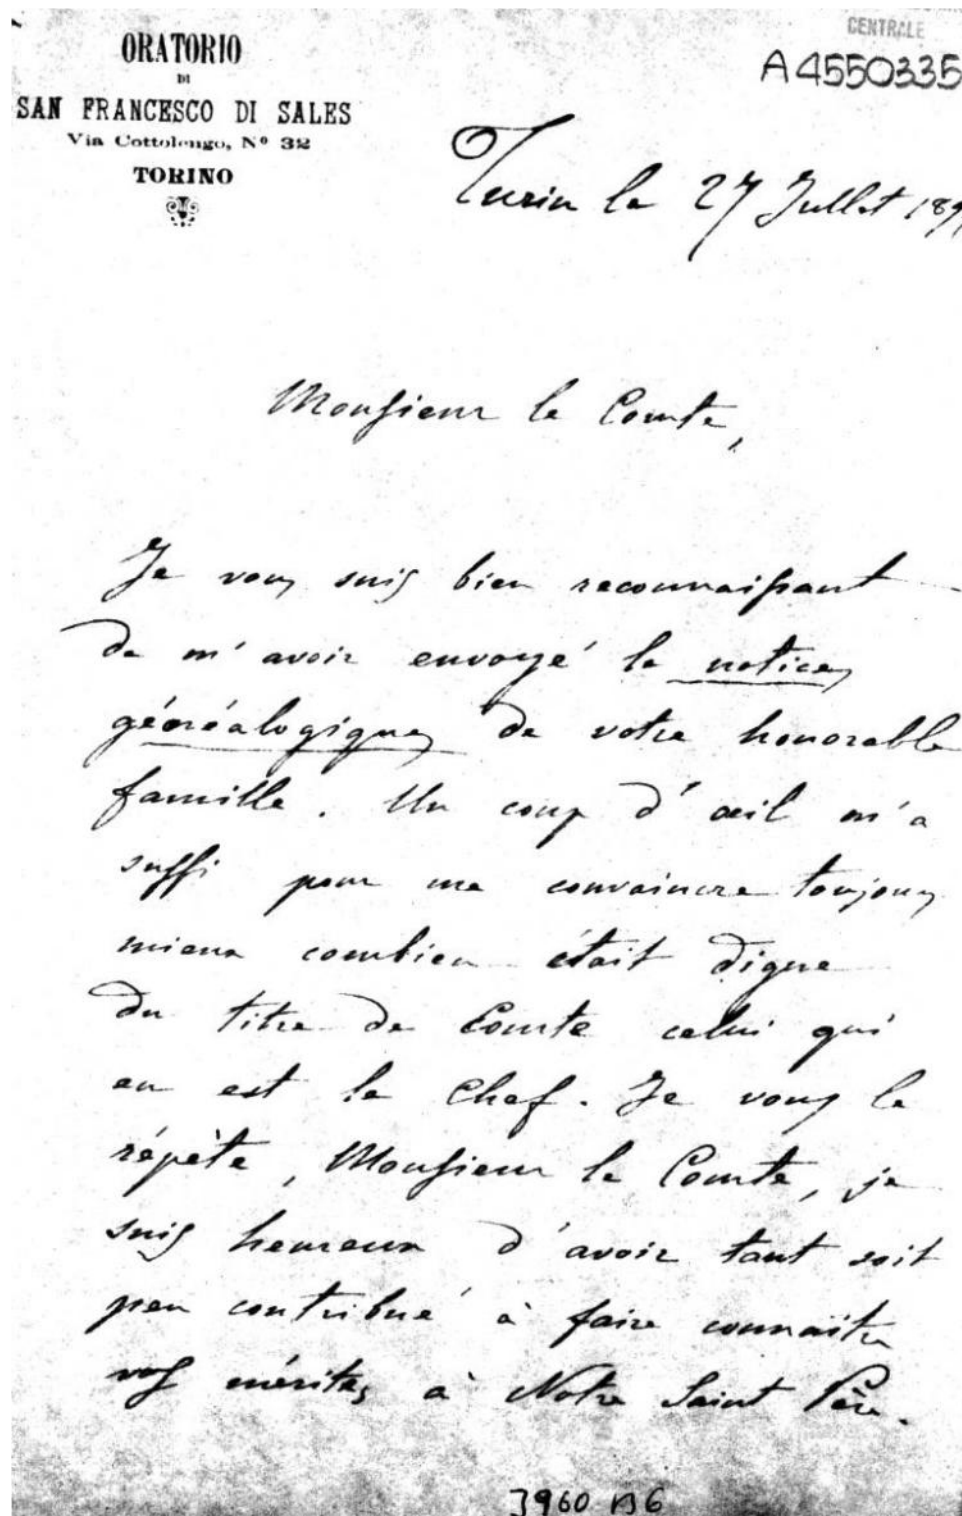 ORATORIO
DI
SAN FRANCESCO DI SALES
Via Cottolengo, Nº 32
TORINO
CENTRALE
A4550335
Turin le 27 Jullet 189
Monsieur le Comte,
Je vous suis bien reconnaissant
de m'avoir envoyé la notice
généalogique de votre honorable
famille. Un coup d'œil m'a
suffi pour me convaincre toujours
mieux combien était digne
du titre de Comte celui qui
en est le Chef. Je vous le
répète, Monsieur le Comte, je
suis heureux d'avoir tant soit
peu contribué à faire connaître
vos mérites à Notre Saint Père.
3960 B6